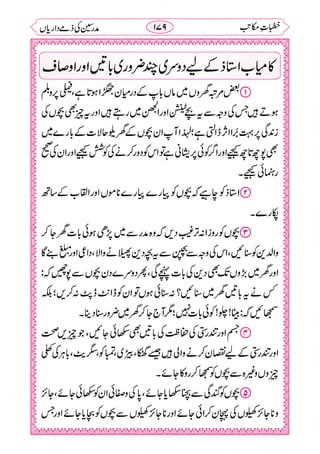 خطباتِ مکاتب ۱۷۹ مدرسین کی ذمے داریاں
کامیاب استاذ کے لیے دوسری چند ضروری باتیں اور اوصاف
① بعض مرتبہ گھروں میں ماں باپ کے درمیان جھگڑا ہوتا ہے، فیملی پرابلم
ہوتے ہیں جس کی وجہ سے یہ بچے ٹینشن اور الجھن میں رہتے ہیں اور یہ چیز بھی بچوں کی
زندگی پر بہت بُرا اثر ڈالتی ہے؛ لہٰذا آپ ان بچوں کے گھریلو حالات کے بارے میں
بھی پوچھ تاچھ کیجیے اور اگر کوئی پریشانی ہے تو اس کو دور کرنے کی کوشش کیجیے اور ان کی صحیح
رہنمائی کیجیے۔
② استاذ کو چاہیے کہ بچوں کو پیارے پیارے ناموں اور القاب کے ساتھ
پکارے۔
③ بچوں کو روزانہ ترغیب دیں کہ وہ مدرسے میں پڑھی ہوئی بات گھر جا کر
والدین کو سنائیں، اس کی وجہ سے بچپن ہی سے یہ بچہ دین پھیلانے والا، داعی اور مبلغ بنے گا
اور گھر میں بڑوں تک بھی دین کی بات پہنچے گی، پھر دوسرے دن بچوں سے پوچھیں کہ:
کس نے یہ باتیں گھر میں سنائیں؟ نہ سنائی ہوں تو ان کو ڈانٹ ڈپٹ نہ کریں؛ بلکہ
سمجھائیں کہ: چلو! کوئی بات نہیں؛ مگر آج گھر جا کر ضرور سنا دینا۔
④ جسم اور تندرستی کی حفاظت کی باتیں بھی سکھائی جائیں، جو چیزیں صحت
اور تندرستی کے لیے نقصان کرنے والی ہیں جیسے گٹکھا، بیڑی، تمباکو، سگریٹ، باہر کی کھلی
چیزیں وغیرہ سے بچوں کو سمجھا کر روکا جائے۔
⑤ بچوں کو گندگی سے بچنا سکھایا جائے، پاکی وصفائی ان کو سکھائی جائے، جائز
و ناجائز کھیلوں کی پہچان کرائی جائے اور ناجائز کھیلوں سے بچوں کو بچایا جائے اور جس